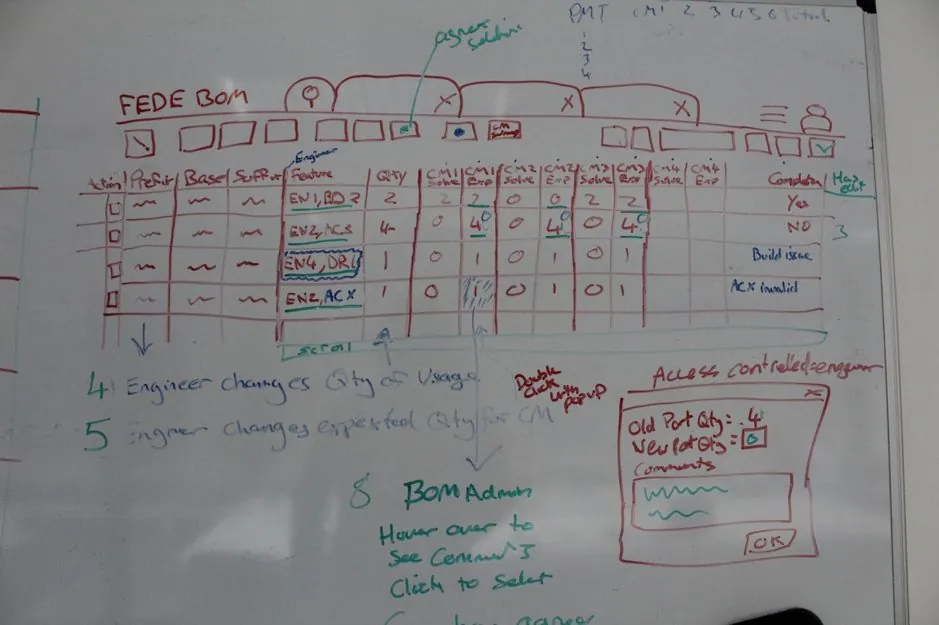 PMT CM1 2 3 4 5 6 Total
1
2
3
4
agree
solution
FEDE BOM
X X X
Engineer
Action Prefix Base Suffix Feature QTY CM1 Solve CM1 Exp CM2 Solve CM2 Exp CM3 Solve CM3 Exp CM4 Solve CM4 Exp Completion
EN1, BD2 2 2 2 0 0 2 2 Yes
EN2, AC3 4 0 4 0 0 4 0 0 4 0 NO 3
EN4, DR1 1 0 1 0 1 0 1 Build issue
EN2, ACX 1 0 1 0 1 0 1 ACX invalid
scroll
4 Engineer changes Qty of Usage
5 Engineer changes expected Qty for CM
Double
click
with
popup
Access controlled=engineer
X
Old Part Qty: 4
New Part Qty = 0
Comments
OK
8 BOM Admin
Hover over to
See Comment
Click to Select